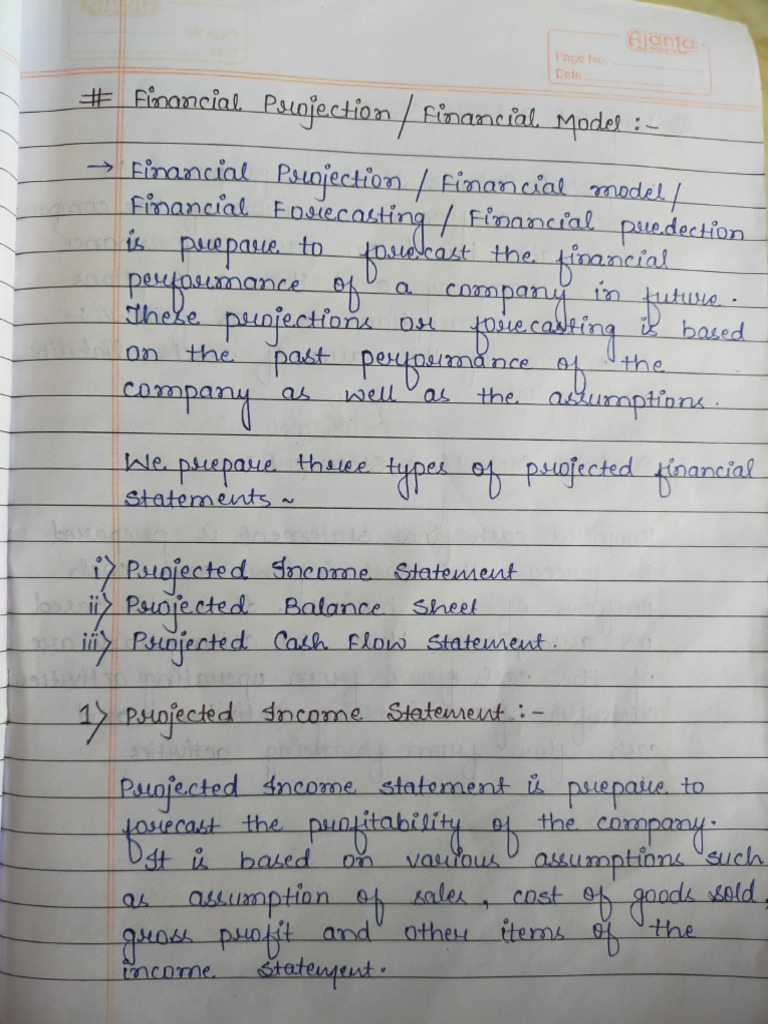 Ajanta
Page No.
Date
# Financial Projection / Financial Model :-
→ Financial Projection / Financial model /
Financial Forecasting / Financial predection
is prepare to forecast the financial
performance of a company in future.
These projections or forecasting is based
on the past performance of the
company as well as the assumptions.
We prepare three types of projected financial
statements ~
i) Projected Income Statement
ii) Projected Balance Sheet
iii) Projected Cash Flow Statement.
1) Projected Income Statement :-
Projected Income statement is prepare to
forecast the profitability of the company.
It is based on various assumptions such
as assumption of sales, cost of goods sold,
gross profit and other items of the
income statement.